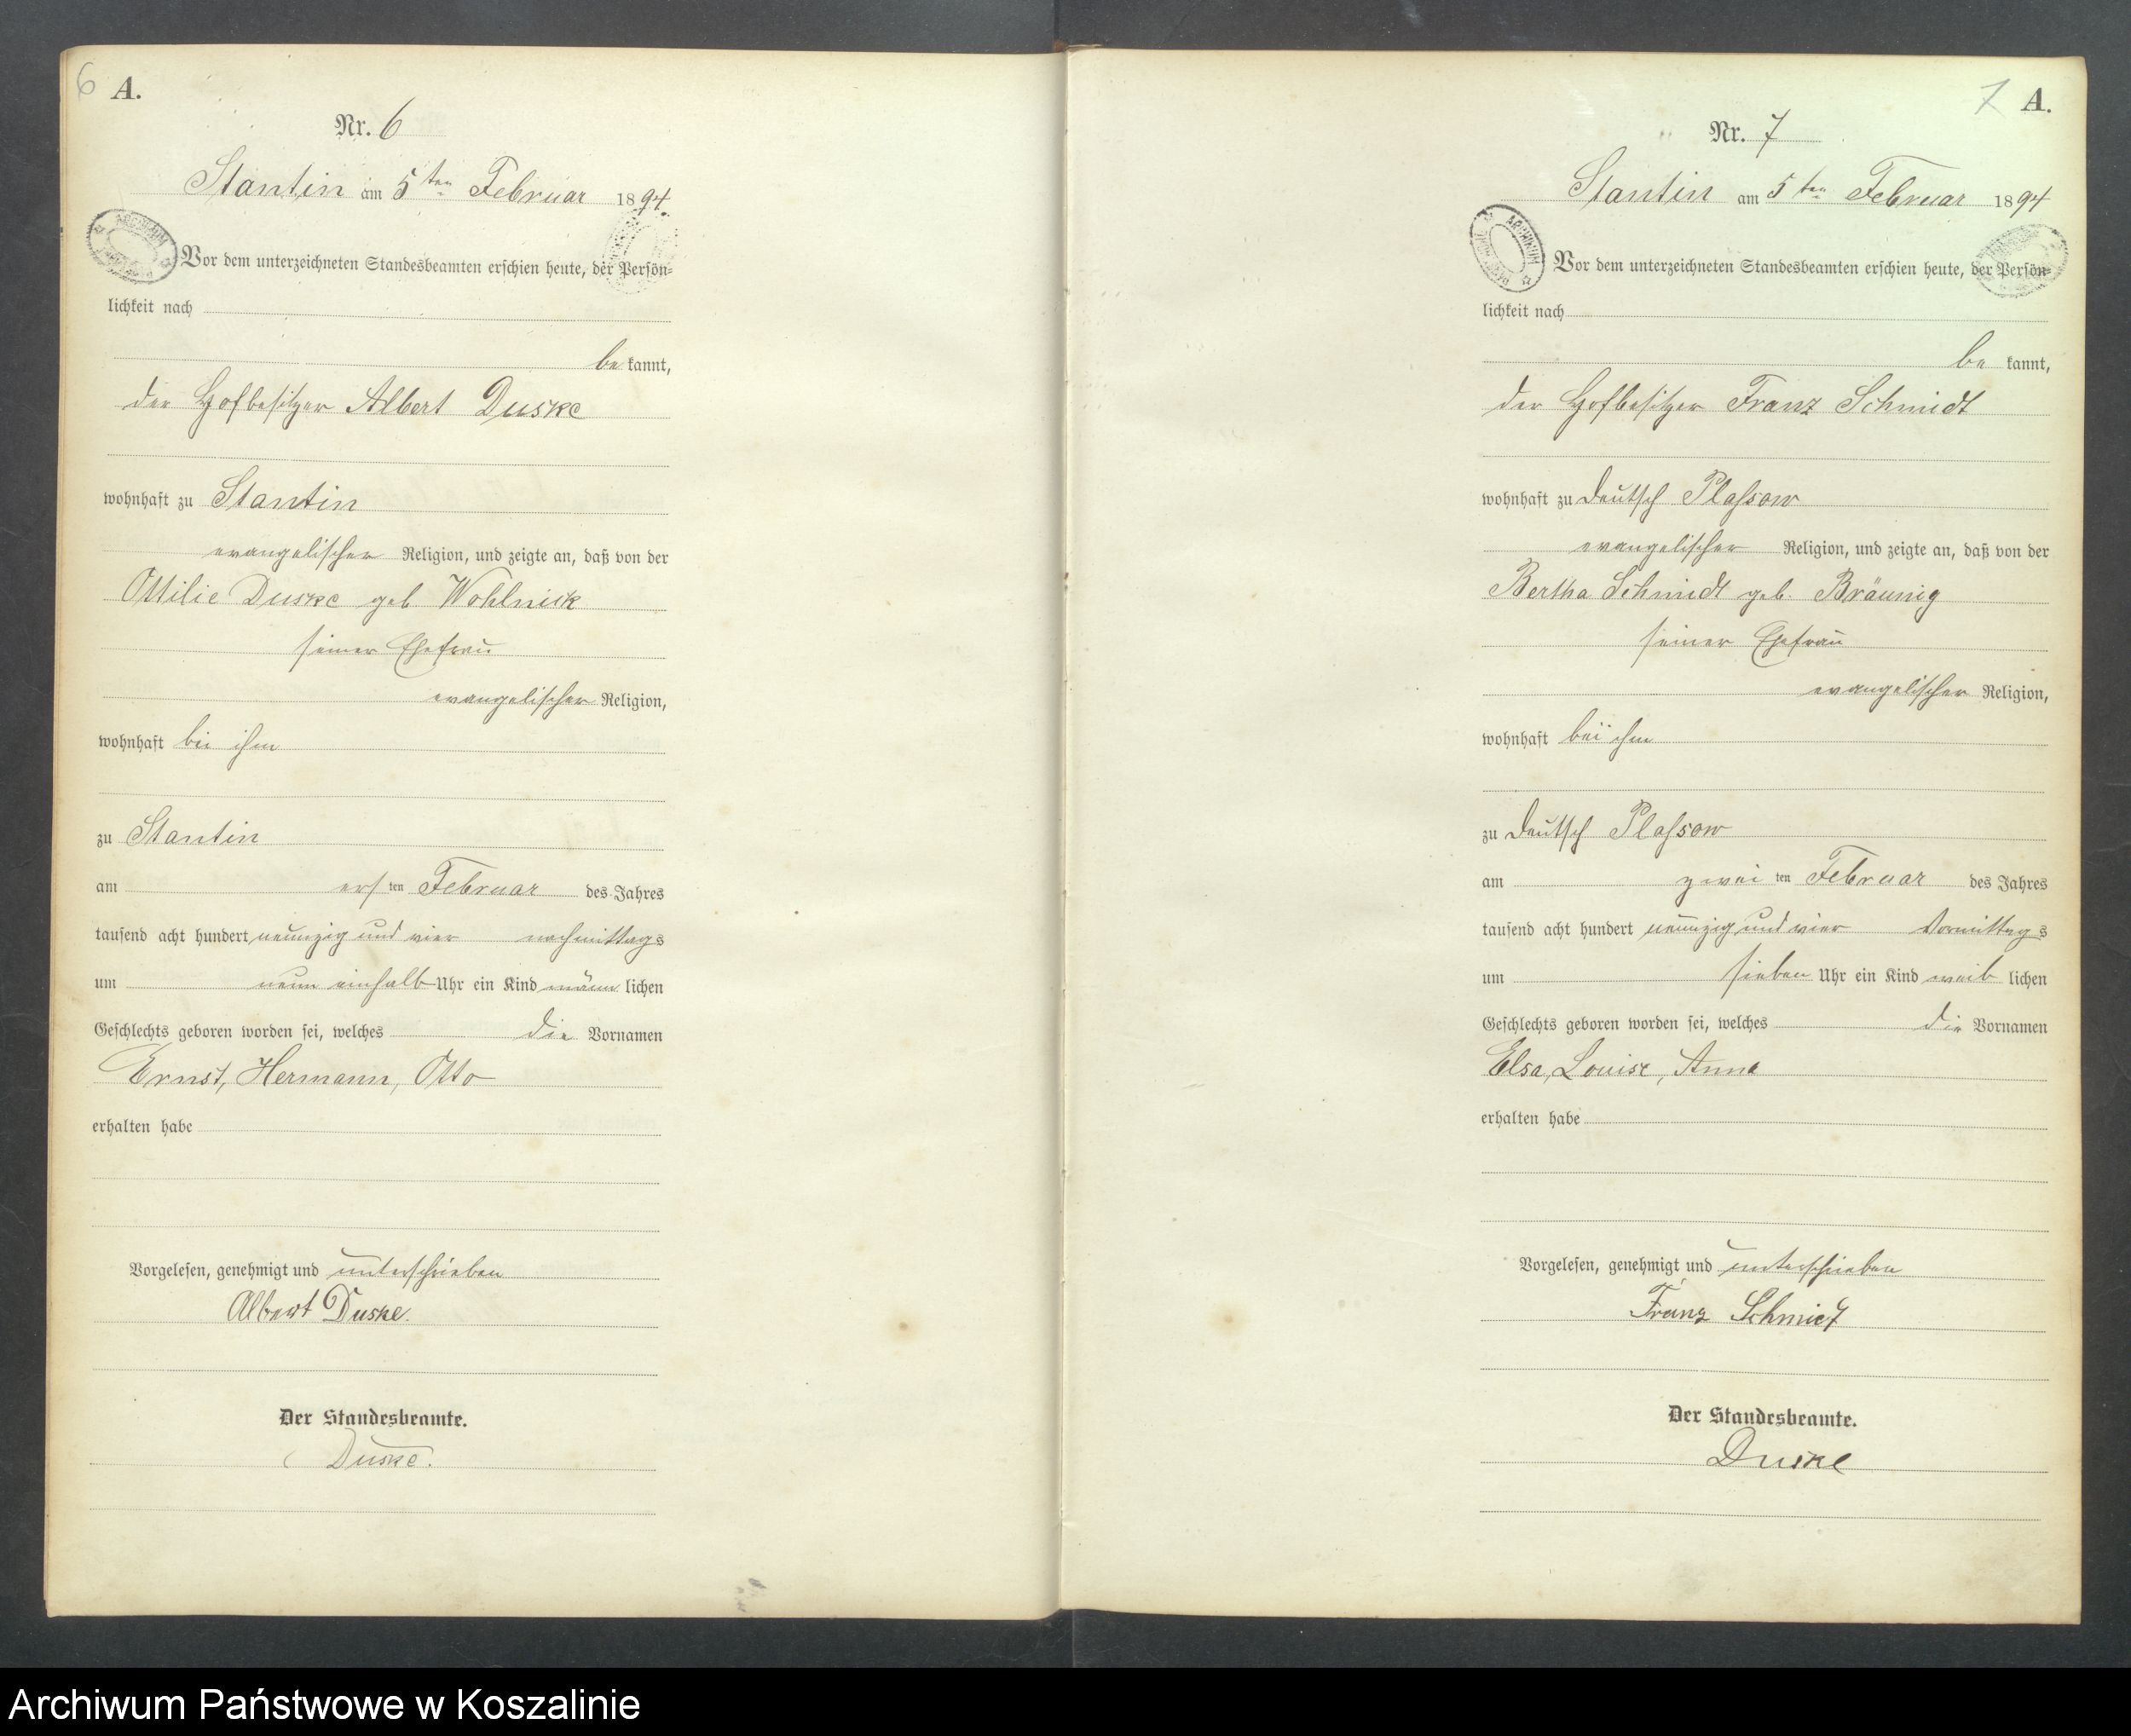 6 A.
Nr. 6
Stantin am 5ten Februar 1894.
Vor dem unterzeichneten Standesbeamten erschien heute, der Persön-
lichkeit nach
bekannt,
der Hofbesitzer Albert Duske
wohnhaft zu Stantin
evangelischer Religion, und zeigte an, daß von der
Ottilie Duske geb Wohlnick
seiner Ehefrau
evangelischer Religion,
wohnhaft bei ihm
zu Stantin
am ersten Februar des Jahres
tausend acht hundert neunzig und vier nachmittags
um neun einhalb Uhr ein Kind männlichen
Geschlechts geboren worden sei, welches die Vornamen
Ernst, Hermann, Otto
erhalten habe
Vorgelesen, genehmigt und unterschrieben
Albert Duske.
Der Standesbeamte.
Duske.
7 A.
Nr. 7
Stantin am 5ten Februar 1894
ARCHIWUM
Vor dem unterzeichneten Standesbeamten erschien heute, der Persön-
lichkeit nach
bekannt,
der Hofbesitzer Franz Schmidt
wohnhaft zu Deutsch Plassow
evangelischer Religion, und zeigte an, daß von der
Bertha Schmidt geb. Bräunig
seiner Ehefrau
evangelischer Religion,
wohnhaft bei ihm
zu Deutsch Plassow
am zweiten Februar des Jahres
tausend acht hundert neunzig und vier Vormittags
um sieben Uhr ein Kind weiblichen
Geschlechts geboren worden sei, welches die Vornamen
Elsa, Louise, Anna
erhalten habe
Vorgelesen, genehmigt und unterschrieben
Franz Schmidt
Der Standesbeamte.
Duske
Archiwum Państwowe w Koszalinie